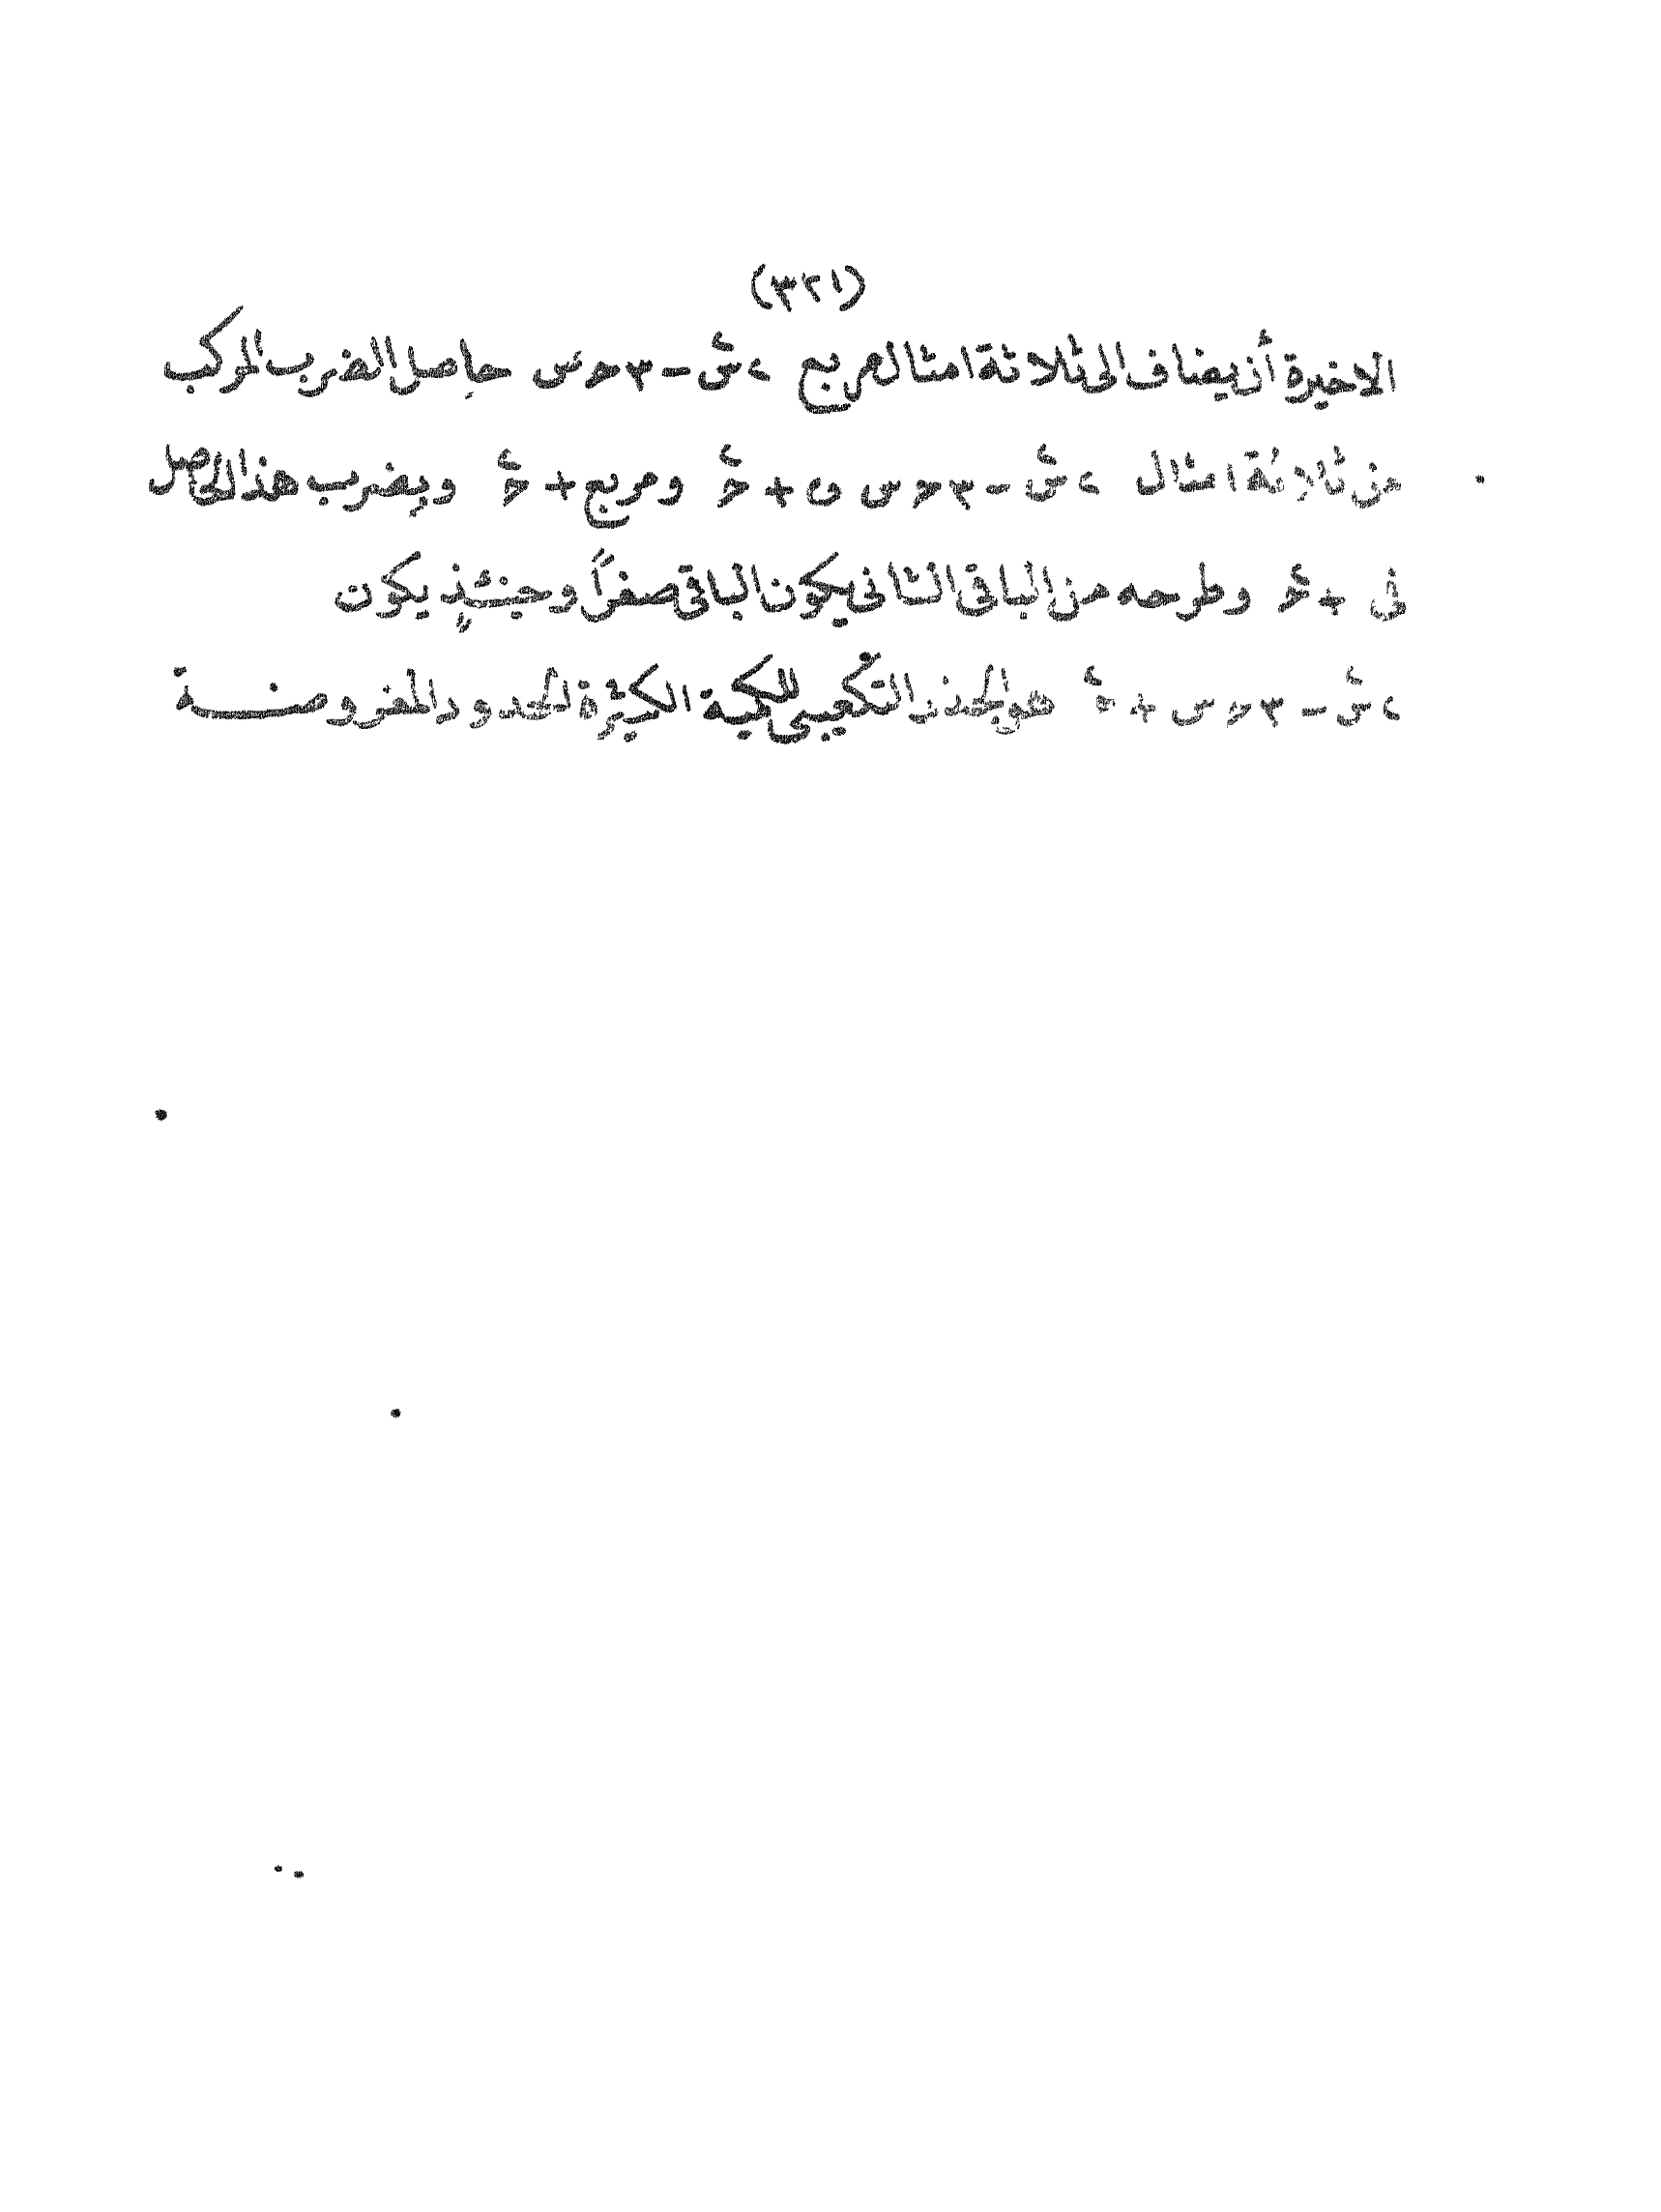 (٣٢١)
الاخيرة أن يضاف الى ثلاثة امثال مربع ٢س٢ - ٣حـس حاصل الضرب المركب
من ثلاثة امثال ٢س٢ - ٣حـس و + حـ٢ ومربع + حـ٢ ويضرب هذا الحاصل
فى + حـ٢ وطرحه من الباقى الثانى يكون الباقى صفراً وحينئذٍ يكون
٢س٢ - ٣حـس + حـ٢ هو الجذر التكعيبى للكمية الكثيرة الحدود المفروضة